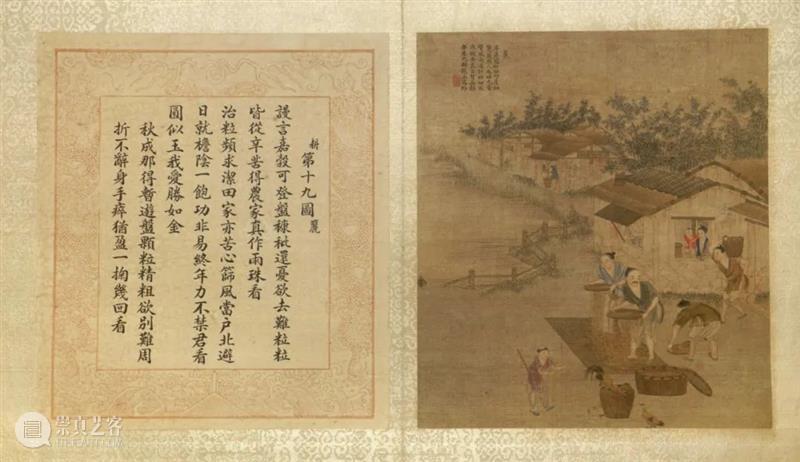 耕 第十九圖 籭
謾言嘉穀可登盤糠秕還憂欲去難粒粒
皆從辛苦得農家真作雨珠看
治粒頻求潔田家亦苦心篩風當户北避
日就檐陰一飽功非易終年力不禁君看
圓似玉我愛勝如金
秋成那得暫遊盤顆粒精粗欲別難周
折不辭身手瘁猶盈一掬幾回看
崇真艺客